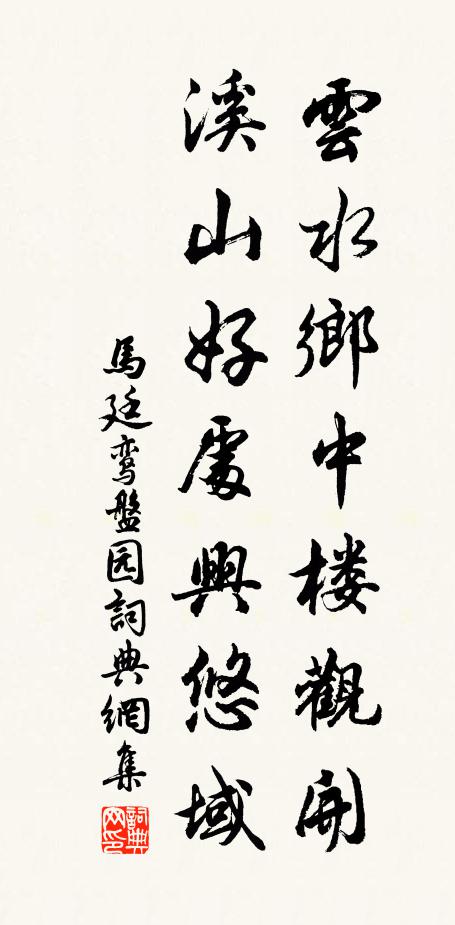 雲水鄉中楼觀開
溪山好處興悠域
馬廷鸾盤园詞典網集
詞典网印